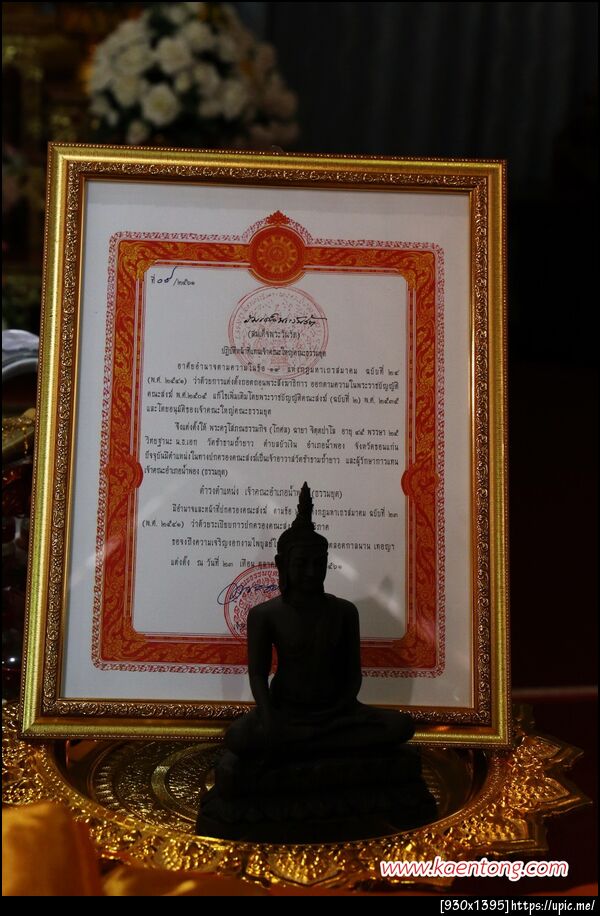 ที่ ๐๙/๒๕๖๑
(สมเด็จพระวันรัต)
ปฏิบัติหน้าที่แทนเจ้าคณะใหญ่คณะธรรมยุต
อาศัยอำนาจตามความในข้อ แห่งกฎมหาเถรสมาคม ฉบับที่ ๒๔
(พ.ศ. ๒๕๔๑) ว่าด้วยการแต่งตั้งถอดถอนพระสังฆาธิการ ออกตามความในพระราชบัญญัติ
คณะสงฆ์ พ.ศ.๒๕๐๕ แก้ไขเพิ่มเติมโดยพระราชบัญญัติคณะสงฆ์ (ฉบับที่ ๒) พ.ศ. ๒๕๓๕
และโดยอนุมัติของเจ้าคณะใหญ่คณะธรรมยุต
จึงแต่งตั้งให้ พระครูโสภณธรรมกิจ (โกศล) ฉายา อายุ ๔๕ พรรษา ๒๕
วิทยฐานะ น.ธ.เอก วัดชำขามถ้ำยาว ตำบลบัวเงิน อำเภอน้ำพอง จังหวัดขอนแก่น
ปัจจุบันมีตำแหน่งในทางปกครองคณะสงฆ์เป็นเจ้าอาวาสวัดชำขามถ้ำยาว และผู้รักษาการแทน
เจ้าคณะอำเภอน้ำพอง (ธรรมยุต)
ดำรงตำแหน่ง เจ้าคณะอำเภอน้ำพอง (ธรรมยุต)
มีอำนาจและหน้าที่ปกครองคณะสงฆ์ ตามข้อ กฎมหาเถรสมาคม ฉบับที่ ๒๓
(พ.ศ. ๒๕๔๑) ว่าด้วยระเบียบการปกครองคณะสงฆ์ ภาค
ขอจงมีความเจริญงอกงามไพบูลย์ ตลอดกาลนาน เทอญฯ
แต่งตั้ง ณ วันที่ ๒๓ เดือน ตุลาคม ๖๑
www.kaentong.com
[930x1395]https://upic.me/